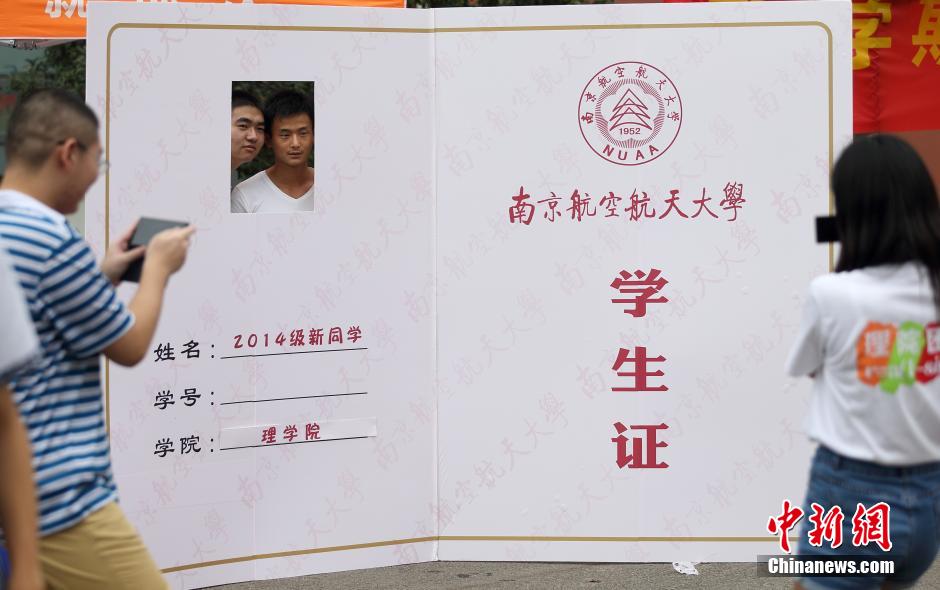 学期
南京航空航天大学
1952
NUAA
南京航空航天大學
学生证
姓名：2014级新同学
学号：
学院：理学院
中新网
Chinanews.com